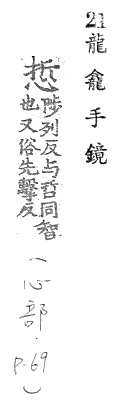 21 龍龕手鏡
悊
陟列反与哲同智
也又俗先擊反
(心部. p.69)